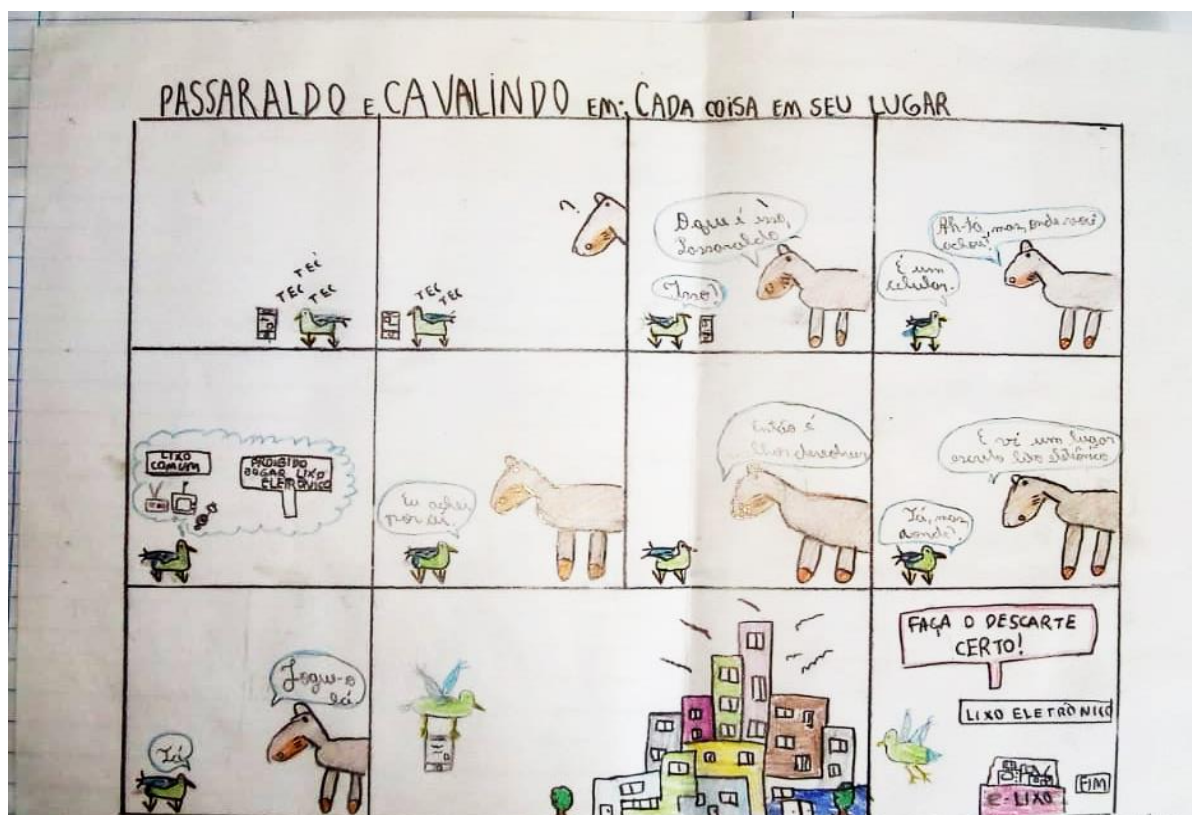 PASSARALDO E CAVALINDO EM: CADA COISA EM SEU LUGAR
TEC
TEC
TEC
?
TEC
TEC
O que é isso,
Passaraldo?
Isso?
Ah-tá, mas, onde você
achou?
É um
celular.
LIXO
COMUM
PROIBIDO
JOGAR LIXO
ELETRÔNICO
Eu achei
por aí.
Então é
devolver
E vi um lugar
escrito lixo eletrônico
Tá, mas
aonde?
Jogue-o
lá
Tá
FAÇA O DESCARTE
CERTO!
LIXO ELETRÔNICO
E-LIXO
FIM